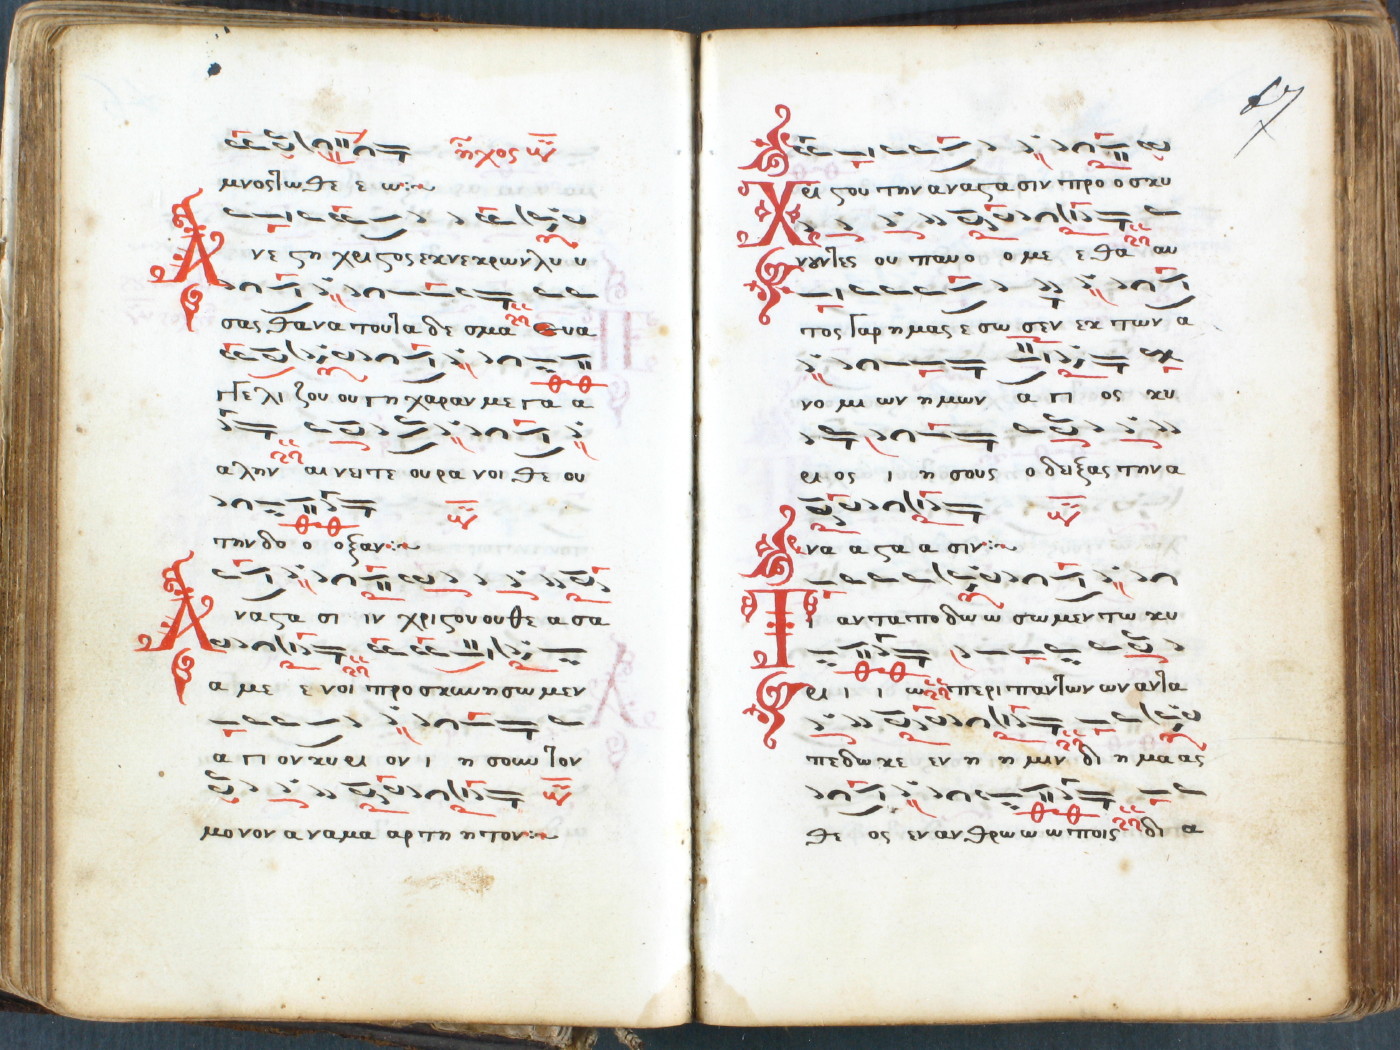 ἦχος
μνος τω θε ε ω
Α νε ϛη χριϛος εκ νεκρων λυ υ
σας θανατου τα δε σμα ευα
γγε λι ζου ου γη χαραν με γα α
α λην αι νει τε ουρανοι θε ου
την δο ο οξαν
Α ναϛα σι ιν χριϛου ου θε α σα
α με ε νοι προσκυνησωμεν
α γι ον κυρι ον ι η σουν τον
μονον α να μα αρτη η τον
67
Χ ρι ϛου την αναϛασιν προ ο σκυ
νουντες ου παυο ο με ε θα αυ
τος γαρ ημας ε σω σεν εκ των α
νο μι ων ημων α γι ος κυ
ρι ος ι η σους ο δειξας την α
να α ϛα α σιν
Τ ι αν τα πο δω ω σωμεν τω κυ
ρι ι ι ω περι παντων ων αντα
πεδωκε εν η η μιν δι η μα ας
θε ος εν ανθρω ω ω ποις δι α